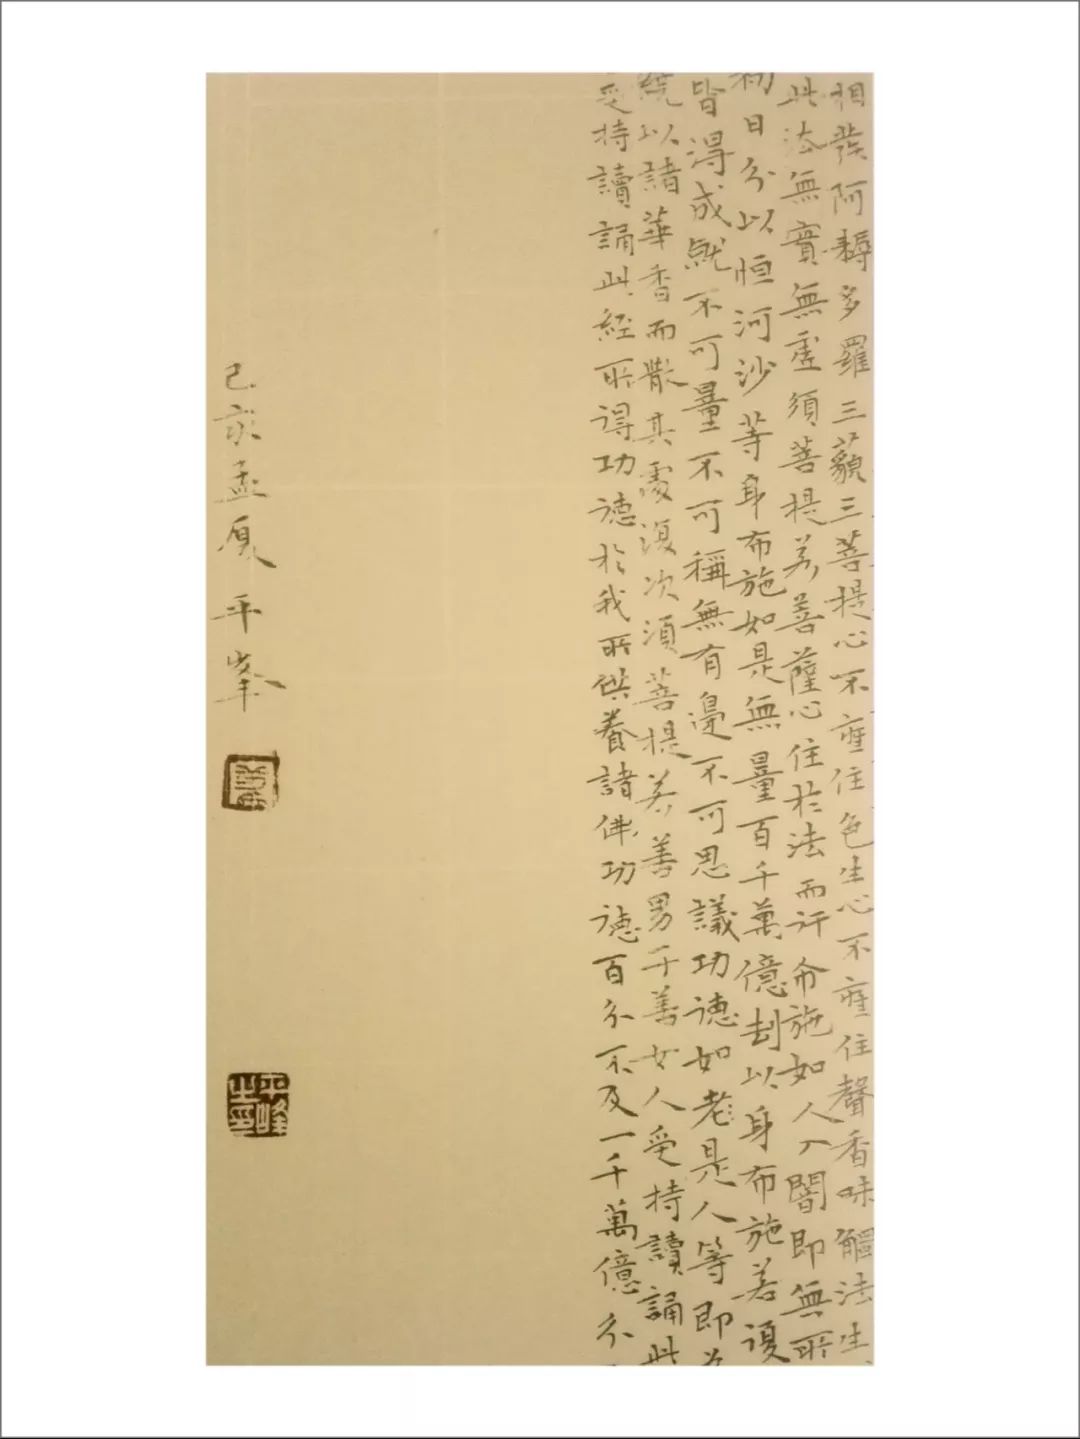 相發阿耨多羅三藐三菩提心不應住色生心不應住聲香味觸法生
此法無實無虛須菩提若菩薩心住於法而行布施如人入闇即無所
初日分以恒河沙等身布施如是無量百千萬億劫以身布施若復
皆得成就不可量不可稱無有邊不可思議功德如老是人等即為
繞以諸華香而散其處復次須菩提若善男子善女人受持讀誦此
受持讀誦此經所得功德於我所供養諸佛功德百分不及一千萬億分
己亥孟夏 平峯
平峰之印